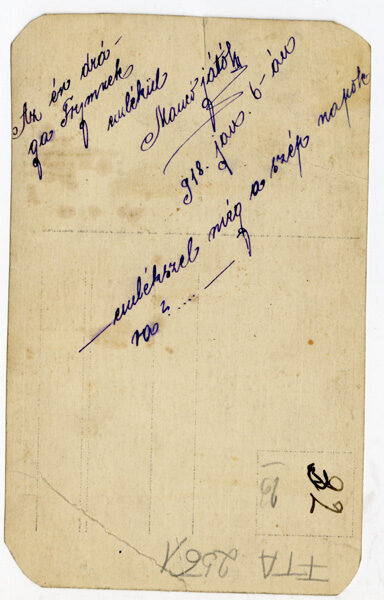 Az én drá-
ga Frymnek
emlékül
Manójától
918. jan. 6-án
emlékszel még a szép napok
ra? ...
82
FTA 2561